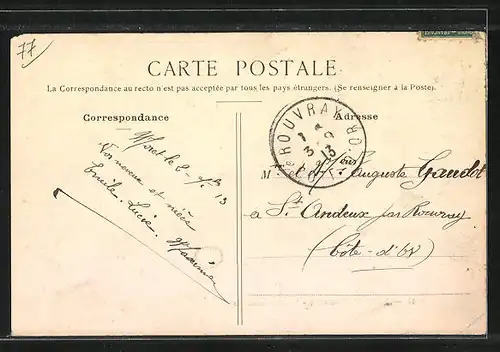 77
CARTE POSTALE
La Correspondance au recto n'est pas acceptée par tous les pays étrangers. (Se renseigner à la Poste).
Correspondance
Adresse
ROUVRAY
CÔTE D'OR
13
Moret le 2
13
Vos neveux et nièce
Emile. Lucie.
M
Auguste Gaudot
a St Andeux par Rouvray
(Côte-d'Or)